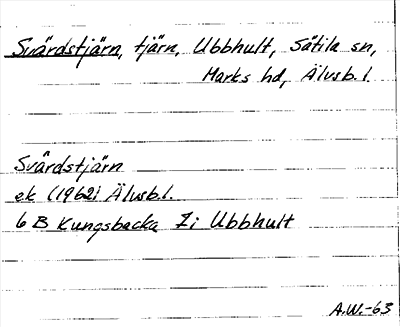 Svärdstjärn, tjärn, Ubbhult, Sätila sn,
Marks hd, Älvsb. l.
Svärdstjärn
ek (1962) Älvsb. l.
6 B Kungsbacka 7i Ubbhult
A.W.-63